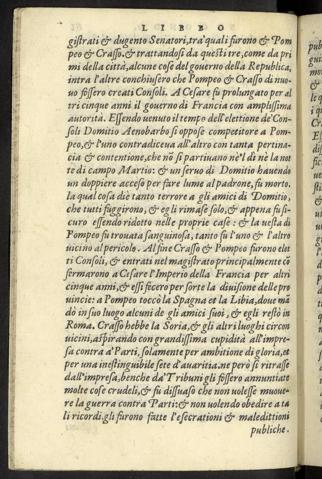 LIBRO
gistrati & dugento Senatori, tra quali furono & Pom
peo & Crasso. & trattandosi da questi tre, come da pri
mi della città, alcune cose del governo della Republica,
intra l'altre conchiusero che Pompeo & Crasso di nuo-
uo fossero creati Consoli. A Cesare fu prolungato per al
tri cinque anni il governo di Francia con amplissima
autorità. Essendo uenuto il tempo dell'elettione de Con-
soli Domitio Aenobarbo si oppose competitore a Pom-
peo, & l'uno contradiceua all'altro con tanta pertina-
cia & contentione, che nō si partiuano nè'l dì nè la not
te di campo Martio: & un seruo di Domitio hauendo
un doppiere acceso per fare lume al padrone, fu morto.
la qual cosa diè tanto terrore a gli amici di Domitio,
che tutti fuggirono, & egli rimase solo, & appena fu si-
curo essendo ridotto nelle proprie case: & la uesta di
Pompeo fu trouata sanguinosa, tanto fu l'uno & l'altro
uicino al pericolo. Al fine Crasso & Pompeo furono elet
ti Consoli, & entrati nel magistrato principalmente cō
fermarono a Cesare l'Imperio della Francia per altri
cinque anni, & essi fecero per sorte la diuisione delle pro
uincie: a Pompeo toccò la Spagna et la Libia, doue mā
dò in suo luogo alcuni de gli amici suoi, & egli restò in
Roma. Crasso hebbe la Soria, & gli altri luoghi circon
uicini, aspirando con grandissima cupidità all'impre-
sa contra a' Parti, solamente per ambitione di gloria, et
per una inestinguibile sete d'auaritia. ne però si ritrasse
dall'impresa, benche da' Tribuni gli fossero annuntiate
molte cose crudeli, & fu dissuaso che non uolesse muoue-
re la guerra contra Parti: & non uolendo obedire a ta
li ricordi gli furono fatte l'esecrationi & maledittioni
publiche.